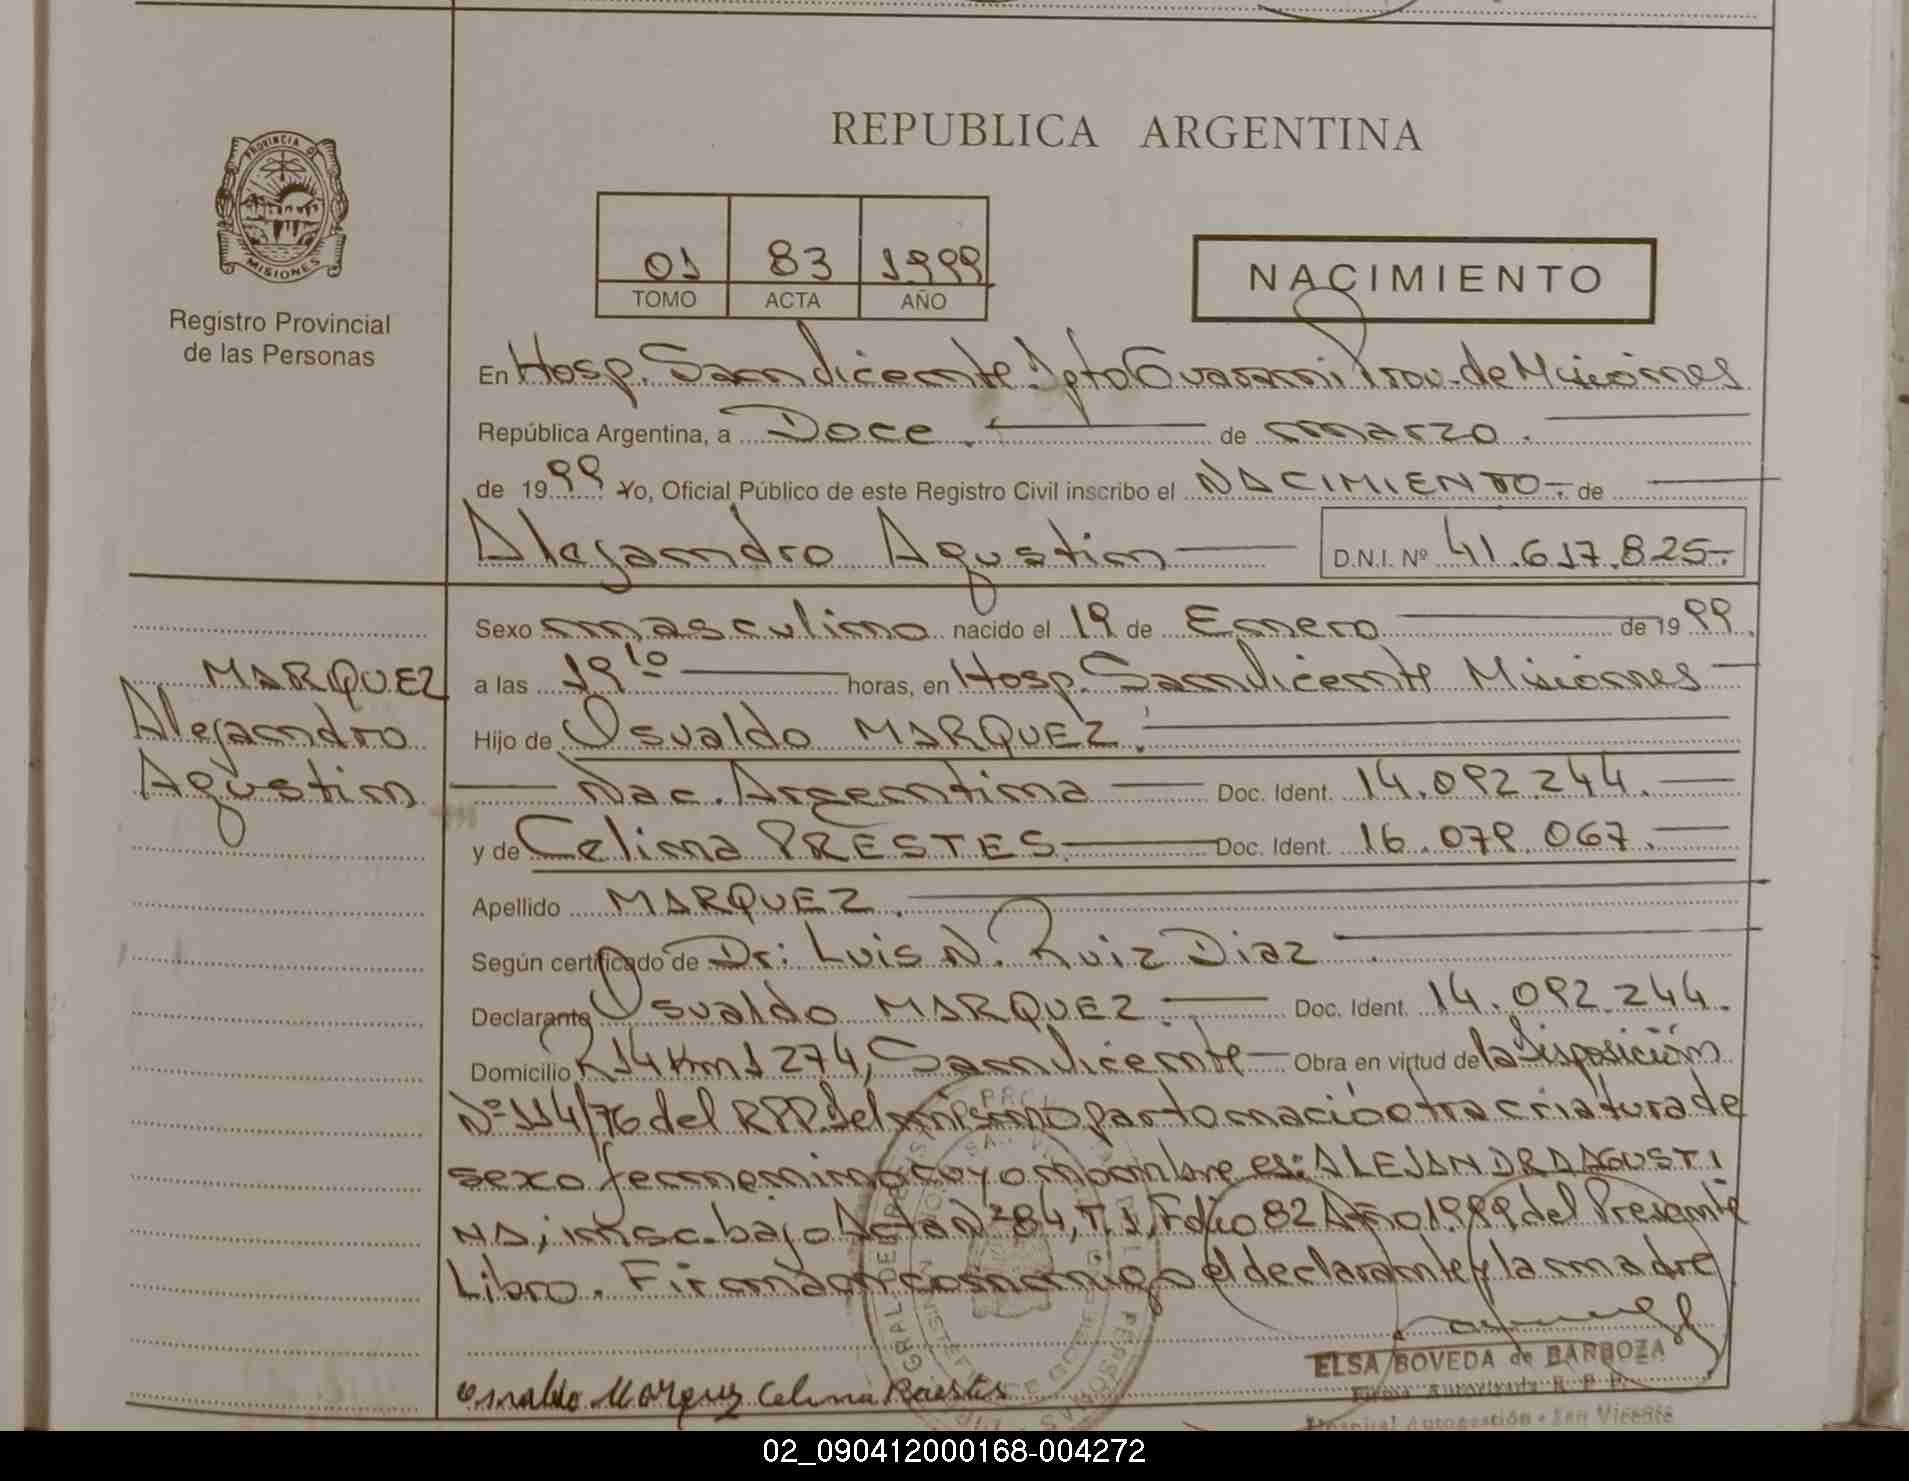 REPUBLICA ARGENTINA
PROVINCIA DE
MISIONES
Registro Provincial
de las Personas
01 83 1999
TOMO ACTA AÑO
NACIMIENTO
En Hosp. San Vicente Dpto Guarani Prov. de Misiones
República Argentina, a Doce. de marzo.
de 1999 Yo, Oficial Público de este Registro Civil inscribo el NACIMIENTO de
Alejandro Agustin D.N.I. Nº 41.617.825-
Sexo masculino nacido el 19 de Enero de 1999.
a las 19 10 horas, en Hosp. San Vicente Misiones
Hijo de Osvaldo MARQUEZ.
Nac. Argentina Doc. Ident. 14.092.244.
y de Celina PRESTES Doc. Ident. 16.079.067.
Apellido MARQUEZ.
Según certificado de Dr: Luis N. Ruiz Diaz
Declarante Osvaldo MARQUEZ. Doc. Ident. 14.092.244.
Domicilio R 14 Km 1274, San Vicente Obra en virtud de la Disposición
Nº 114/76 del RPP. Del mismo parto nació otra criatura de
sexo femenino cuyo nombre es: ALEJANDRA AGUSTI
NA, insc. bajo Acta Nº 84, T. 1, Folio 82 Año 1999 del Presente
Libro. Firman conmigo el declarante y la madre
MARQUEZ
Alejandro
Agustin
Osvaldo Marquez Celina Prestes
ELSA BOVEDA de BARBOZA
Firma Autorizada R. P. P.
Hospital Autogestión - San Vicente
02_090412000168-004272